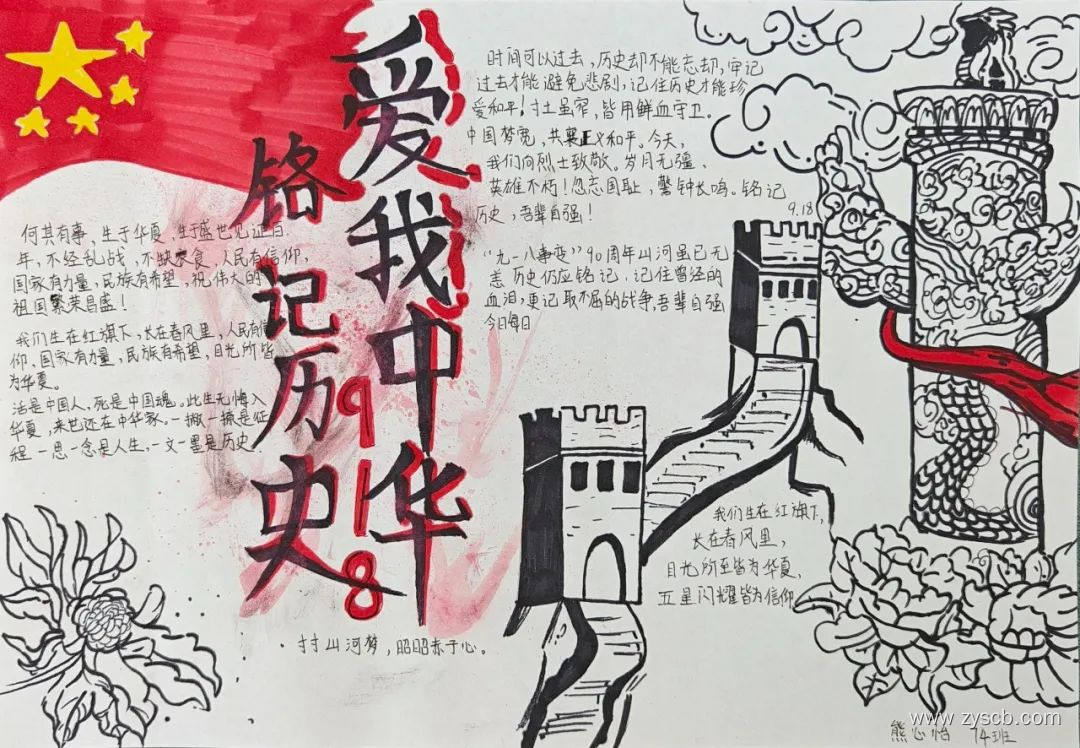 爱我中华
铭记历史
918
时间可以过去,历史却不能忘却,牢记
过去才能避免悲剧,记住历史才能珍
爱和平!寸土虽窄,皆用鲜血守卫。
中国梦宽,共襄正义和平。今天,
我们向烈士致敬。岁月无疆、
英雄不朽!勿忘国耻,警钟长鸣。铭记
历史,吾辈自强!
9.18
“九一八事变”90周年山河虽已无
恙 历史仍应铭记,记住曾经的
血泪,更记取不屈的战争,吾辈自强
今日每日
何其有幸、生于华夏,生于盛世见证百
年,不经乱战,不缺衣食,人民有信仰,
国家有力量,民族有希望,祝伟大的
祖国繁荣昌盛!
我们生在红旗下,长在春风里,人民有信
仰、国家有力量,民族有希望,目光所皆
为华夏。
活是中国人、死是中国魂。此生无悔入
华夏,来世还在中华家。一撇一捺是征
程 一思一念是人生,一文一墨是历史,
我们生在红旗下,
长在春风里,
目光所至皆为华夏,
五星闪耀皆为信仰
寸寸山河梦,昭昭赤子心。
熊心怡 74班
www.zyscb.com